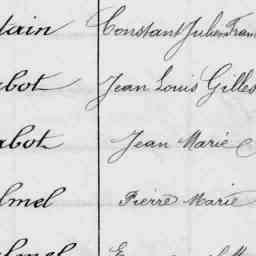 tain Constant Julien Fran
abot Jean Louis Gilles
abot Jean Marie
lmel Pierre Marie
lmel